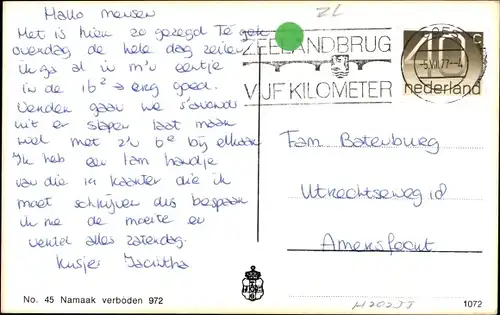 Hallo mensen
Het is hier zo gezegd te gek
overdag de hele dag zeilen
ik ga al in m'n eentje
in de 16² → erg goed.
Verder gaan we s'avonds
uit en slapen laat maar
wel met z'n 6e bij elkaar
Ik heb een lam handje
van die 19 kaarten die ik
moet schrijven dus bespaar
ik me de moeite en
vertel alles zaterdag.
Kusjes Jacintha
ZL
ZEELANDBRUG
VIJF KILOMETER
-5.VII.77.-4
40 c
nederland
Fam Batenburg
Utrechtseweg 18
Amersfoort
No. 45 Namaak verboden 972
1072